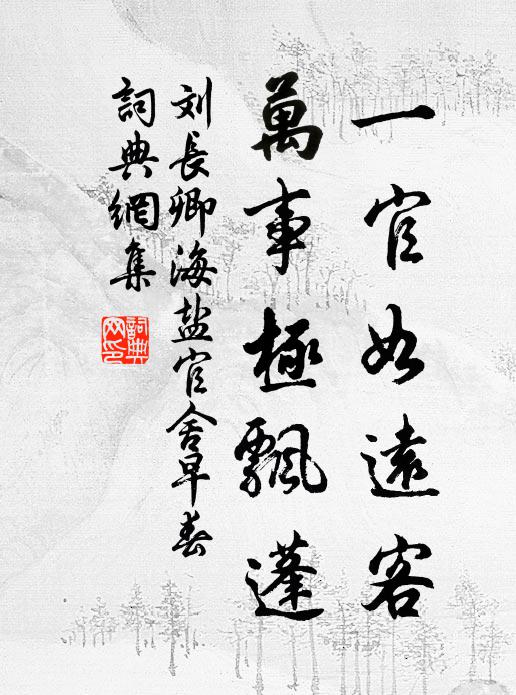 一官如遠客
萬事極飄蓬
刘長卿海盐官舍早春
詞典網集
詞典
网印